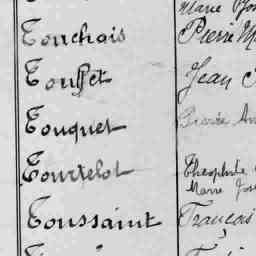 Marie
Touchais Pierre M
Touffet Jean
Touquet Pierre
Tourtelot Théophile
Marie José
Toussaint François